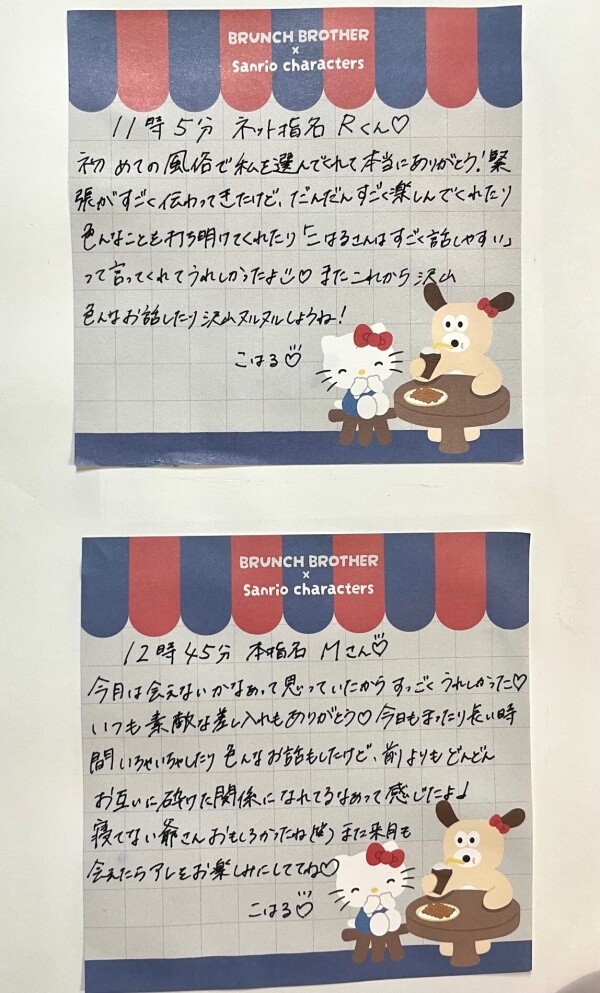 BRUNCH BROTHER
×
Sanrio characters
11時5分 ネット指名 Rくん♡
初めての風俗で私を選んでくれて本当にありがとう!緊
張がすごく伝わってきたけど、だんだんすごく楽しんでくれたり
色んなことも打ち明けてくれたり「こはるさんはすごく話しやすい」
って言ってくれてうれしかったよ♡ またこれから沢山
色んなお話したり沢山ヌルヌルしようね!
こはる♡
BRUNCH BROTHER
×
Sanrio characters
12時45分 本指名 Mさん♡
今月は会えないかなあって思っていたからすっごくうれしかった♡
いつも素敵な差し入れもありがとう♡今日もまったり長い時
間いちゃいちゃしたり色んなお話もしたけど、前よりもどんどん
お互いに砕けた関係になれてるなあって感じたよ♪
寝てない爺さんおもしろかったね(笑) また来月も
会えたらアレをお楽しみにしててね♡
こはる♡